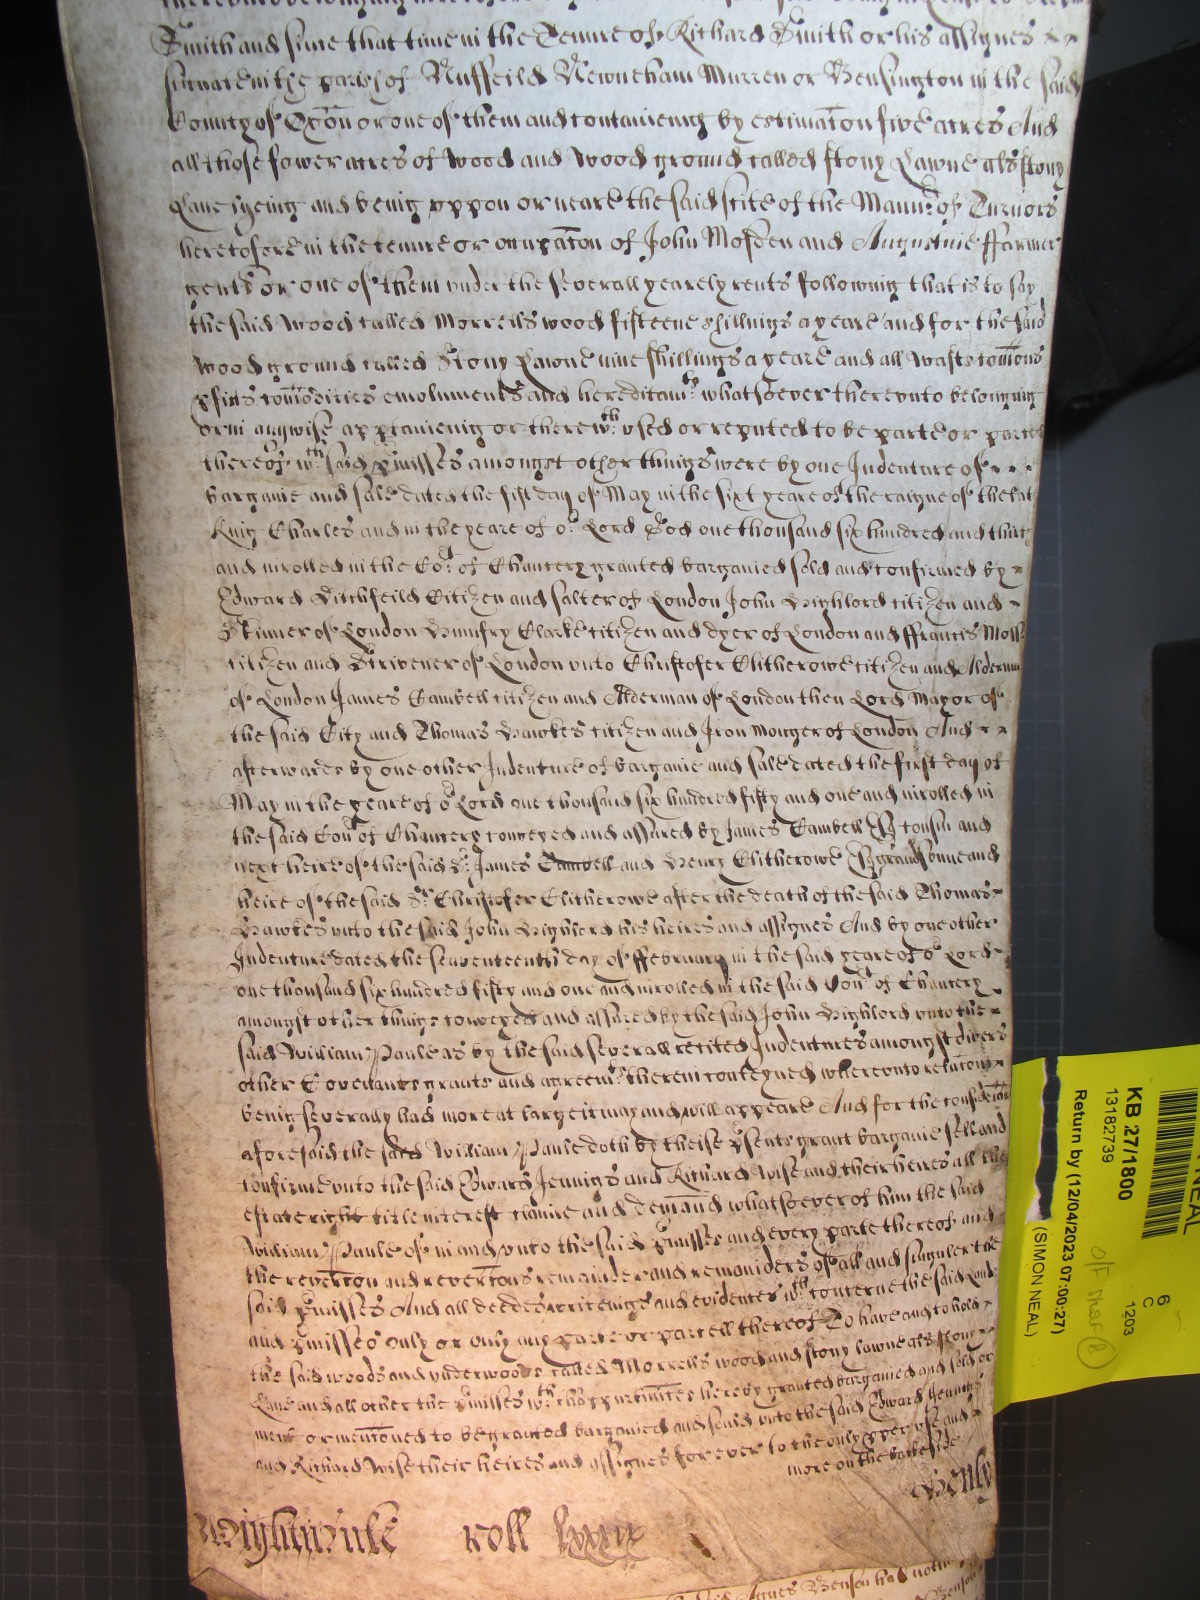 Smith and since that time in the Tenure of Richard Smith or his assignes
scituate in the parish of Nuffeild Newneham Murren or Bensington in the said
County of Oxon or one of them and conteineing by estimacon five acres And
all those fower acres of wood and wood ground called Stony Lawne als Stony
Lane lyeing and being uppon or neare the said scite of the Mannr of Turnors
heretofore in the tenure or occupacon of John Mosden and Augustine ffarmer
gent or one of them under the severall yearely rents following that is to say
the said wood called Morrells wood fifteene shillings a yeare and for the said
wood ground called Stony Lawne nine shillings a yeare and all wasts comons
pfitts comodities emoluments and hereditamts whatsoever thereunto belonging
or in anywise apptaineing or therewth used or reputed to be parte or parcell
thereof wch said pmisses amongst other things were by one Indenture of
bargaine and sale dated the first day of May in the sixt yeare of the raigne of the late
King Charles and in the yeare of or Lord God one thousand six hundred and thirty
and inrolled in the Cort of Chancery granted bargained sold and confirmed by
Edward Ditchfeild Citizen and salter of London John Highlord citizen and
Skinner of London Humfry Clarke citizen and dyer of London and ffrancis Moss
citizen and Scrivener of London unto Christofer Clitherowe citizen and Alderman
of London James Cambell citizen and Alderman of London then Lord Mayor of
the said City and Thomas Hawkes citizen and Iron Monger of London And
afterwards by one other Indenture of bargaine and sale dated the first day of
May in the yeare of or Lord one thousand six hundred fifty and one and inrolled in
the said Cort of Chancery conveyed and assured by James Cambell Esq cousin and
next heire of the said Sr James Cambell and Henry Clitherowe Esq grandsonne and
heire of the said Sr Christofer Clitherowe after the death of the said Thomas
Hawkes unto the said John Highlord his heires and assignes And by one other
Indenture dated the seaventeenth day of ffebruary in the said yeare of or Lord
one thousand six hundred fifty and one and inrolled in the said Cort of Chancery
amongst other things conveyed and assured by the said John Highlord unto the
said William Paule as by the said severall recited Indentures amongst divers
other Covenants grants and agreemts therein conteyned whereunto relacon
being severally had more at large it may and will appeare And for the consideracon
aforesaid the said William Paule doth by theise psents grant bargaine sell and
confirme unto the said Edward Jennings and Richard Wise and their heires all the
estate right title interest claime and demand whatsoever of him the said
William Paule of in and unto the said pmisses and every parte thereof and
the revercon and revercons remainder and remainders of all and singuler the
said pmisses And all deedes writeings and evidences wch concerne the said Lands
and pmisses only or only any parte or parcell thereof To have and to hold
the said woods and underwoods called Morrells wood and Stony Lawne als Stony
Lane and all other the pmisses wth thappurtennces hereby granted bargained and sold or
ment or mentioned to be granted bargained and sould unto the said Edward Jennings
and Richard Wise their heires and assignes for ever to the only pper use and
more on the backeside
Henly
Wightwicke roll lxxix
KB 27/1800
13182739
Return by (12/04/2023 07:00:27)
(SIMON NEAL)
6
C
1203
NEAL